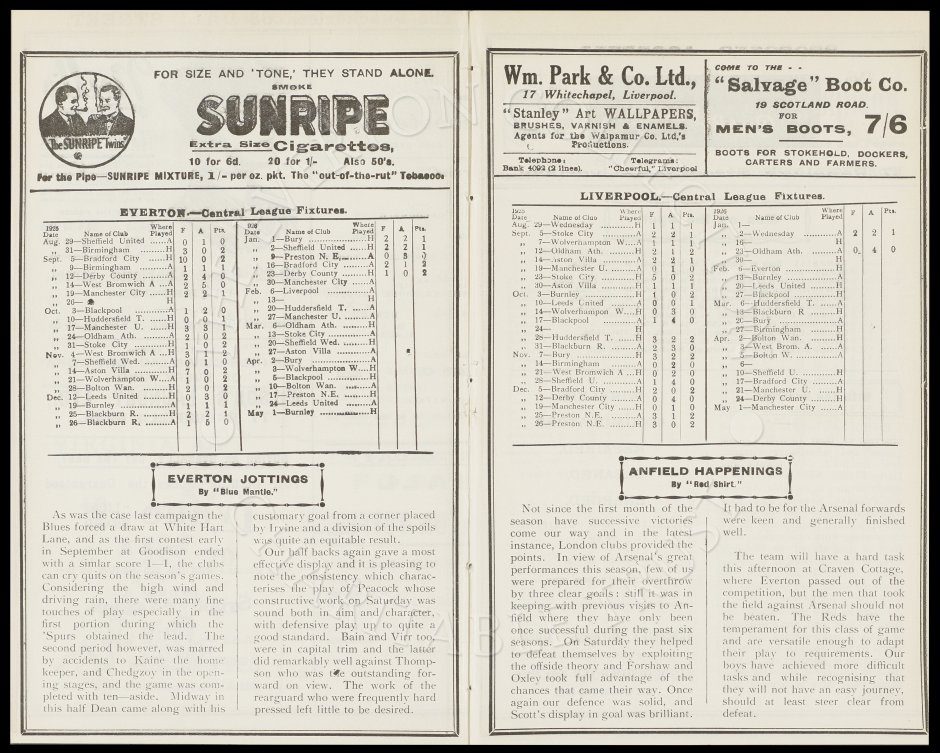 FOR SIZE AND 'TONE,' THEY STAND ALONE.
SMOKE
SUNRIPE
Extra Size Cigarettes,
10 for 6d. 20 for 1/- Also 50's.
The "SUNRIPE Twins"
For the Pipe—SUNRIPE MIXTURE, 1/- per oz. pkt. The "out-of-the-rut" Tobacco.
EVERTON.—Central League Fixtures.
1925
Date Name of Club Where Played F A Pts.
Aug. 29—Sheffield United ......A 0 1 0
„ 31—Birmingham .........H 3 0 2
Sept. 5—Bradford City ......H 10 0 2
„ 9—Birmingham .........A 1 1 1
„ 12—Derby County ......A 2 4 0
„ 14—West Bromwich A ...A 2 5 0
„ 19—Manchester City ......H 2 2 1
„ 26— H
Oct. 3—Blackpool .........A 1 2 0
„ 10—Huddersfield T. ......H 0 0 1
„ 17—Manchester U. ......H 3 3 1
„ 24—Oldham Ath. .........A 2 0 2
„ 31—Stoke City .........H 1 0 2
Nov. 4—West Bromwich A ...H 3 1 2
„ 7—Sheffield Wed. ......A 0 1 0
„ 14—Aston Villa .........H 7 0 2
„ 21—Wolverhampton W....A 1 0 2
„ 28—Bolton Wan. .........H 2 0 2
Dec. 12—Leeds United .........H 0 3 0
„ 19—Burnley ............A 1 1 1
„ 25—Blackburn R. .........H 2 2 1
„ 26—Blackburn R. .........A 1 5 0
1926
Date Name of Club Where Played F A Pts.
Jan. 1—Bury ...............H 2 2 1
„ 2—Sheffield United ......H 2 2 1
„ 9—Preston N. E. .........A 0 3 0
„ 16—Bradford City .........A 2 1 2
„ 23—Derby County .........H 1 0 2
„ 30—Manchester City ......A
Feb. 6—Liverpool ............A
„ 13— H
„ 20—Huddersfield T. ......A
„ 27—Manchester U. .........A
Mar. 6—Oldham Ath. .........H
„ 13—Stoke City ............A
„ 20—Sheffield Wed. .........H
„ 27—Aston Villa ............A
Apr. 2—Bury ...............A
„ 3—Wolverhampton W....H
„ 5—Blackpool ............H
„ 10—Bolton Wan. .........A
„ 17—Preston N.E. .........H
„ 24—Leeds United .........A
May 1—Burnley ............H
EVERTON JOTTINGS
By "Blue Mantle."
As was the case last campaign the
Blues forced a draw at White Hart
Lane, and as the first contest early
in September at Goodison ended
with a similar score 1—1, the clubs
can cry quits on the season's games.
Considering the high wind and
driving rain, there were many fine
touches of play especially in the
first portion during which the
'Spurs obtained the lead. The
second period however, was marred
by accidents to Kaine the home
keeper, and Chedgzoy in the open-
ing stages, and the game was com-
pleted with ten—aside. Midway in
this half Dean came along with his
customary goal from a corner placed
by Irvine and a division of the spoils
was quite an equitable result.
Our half backs again gave a most
effective display and it is pleasing to
note the consistency which charac-
terises the play of Peacock whose
constructive work on Saturday was
sound both in aim and character,
with defensive play up to quite a
good standard. Bain and Virr too,
were in capital trim and the latter
did remarkably well against Thomp-
son who was the outstanding for-
ward on view. The work of the
rearguard who were frequently hard
pressed left little to be desired.
Wm. Park & Co. Ltd.,
17 Whitechapel, Liverpool.
"Stanley" Art WALLPAPERS,
BRUSHES, VARNISH & ENAMELS.
Agents for the Walpamur Co. Ltd,'s
Productions.
Telephone: Telegrams:
Bank 4092 (2 lines). "Cheerful," Liverpool
COME TO THE - -
"Salvage" Boot Co.
19 SCOTLAND ROAD.
FOR
MEN'S BOOTS, 7/6
BOOTS FOR STOKEHOLD, DOCKERS,
CARTERS AND FARMERS.
LIVERPOOL.—Central League Fixtures.
1925
Date Name of Club Where Played F A Pts.
Aug. 29—Wednesday .........H 1 1 1
Sept. 5—Stoke City .........A 2 2 1
„ 7—Wolverhampton W....A 1 1 1
„ 12—Oldham Ath. .........H 2 1 2
„ 14—Aston Villa .........A 2 2 1
„ 19—Manchester U. ......A 0 1 0
„ 23—Stoke City .........H 5 0 2
„ 30—Aston Villa .........H 1 1 1
Oct. 3—Burnley ............H 1 0 2
„ 10—Leeds United .........A 0 0 1
„ 14—Wolverhampton W...H 0 3 0
„ 17—Blackpool .........A 1 4 0
„ 24— H
„ 28—Huddersfield T. ......H 3 2 2
„ 31—Blackburn R. .........A 2 3 0
Nov. 7—Bury ...............H 3 2 2
„ 14—Birmingham .........A 0 2 0
„ 21—West Bromwich A ...H 0 2 0
„ 28—Sheffield U. .........A 1 4 0
Dec. 5—Bradford City .........H 2 0 2
„ 12—Derby County .........A 0 4 0
„ 19—Manchester City ......H 0 1 0
„ 25—Preston N.E. .........A 3 1 2
„ 26—Preston N.E. .........H 3 0 2
1926
Date Name of Club Where Played F A Pts.
Jan. 1—
„ 2—Wednesday ............A 2 2 1
„ 16— H
„ 23—Oldham Ath. .........A 0 4 0
„ 30—
Feb. 6—Everton ............H
„ 13—Burnley ............A
„ 20—Leeds United .........H
„ 27—Blackpool ............H
Mar. 6—Huddersfield T. ......A
„ 13—Blackburn R .........H
„ 20—Bury ...............A
„ 27—Birmingham .........H
Apr. 2—Bolton Wan. .........H
„ 3—West Brom. A. .........A
„ 5—Bolton W. ............A
„ 6—
„ 10—Sheffield U. .........H
„ 17—Bradford City .........A
„ 21—Manchester U. .........H
„ 24—Derby County .........H
May 1—Manchester City ......A
ANFIELD HAPPENINGS
By "Red Shirt."
Not since the first month of the
season have successive victories
come our way and in the latest
instance, London clubs provided the
points. In view of Arsenal's great
performances this season, few of us
were prepared for their overthrow
by three clear goals: still it was in
keeping with previous visits to An-
field where they have only been
once successful during the past six
seasons. On Saturday they helped
to defeat themselves by exploiting
the offside theory and Forshaw and
Oxley took full advantage of the
chances that came their way. Once
again our defence was solid, and
Scott's display in goal was brilliant.
It had to be for the Arsenal forwards
were keen and generally finished
well.
The team will have a hard task
this afternoon at Craven Cottage,
where Everton passed out of the
competition, but the men that took
the field against Arsenal should not
be beaten. The Reds have the
temperament for this class of game
and are versatile enough to adapt
their play to requirements. Our
boys have achieved more difficult
tasks and while recognising that
they will not have an easy journey,
should at least steer clear from
defeat.